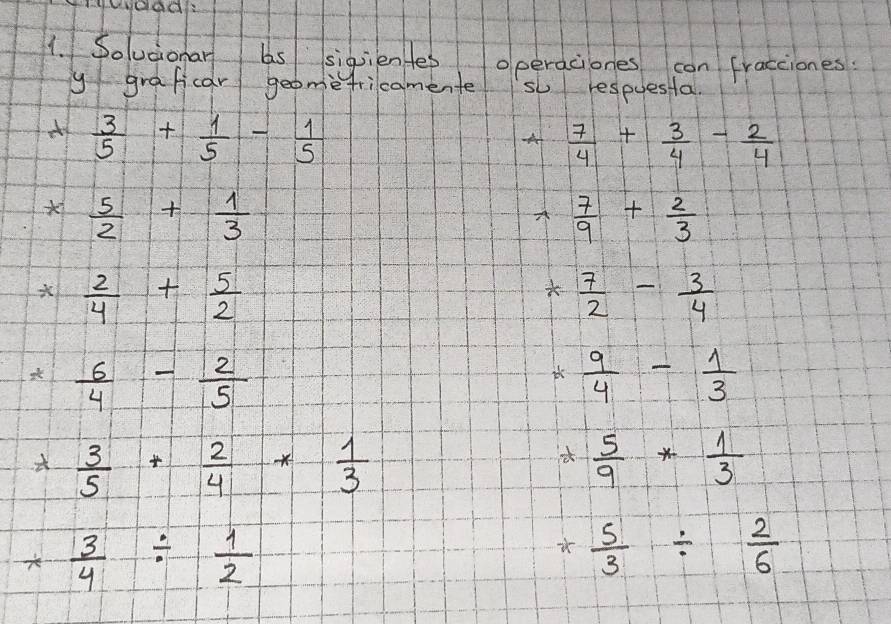 1. Solucionar las siguientes operaciones con fracciones:
y graficar geométricamente su respuesta.
* 3/5 + 1/5 - 1/5
* 7/4 + 3/4 - 2/4
* 5/2 + 1/3
* 7/9 + 2/3
* 2/4 + 5/2
* 7/2 - 3/4
* 6/4 - 2/5
* 9/4 - 1/3
* 3/5 * 2/4 * 1/3
* 5/9 * 1/3
* 3/4 ÷ 1/2
* 5/3 ÷ 2/6